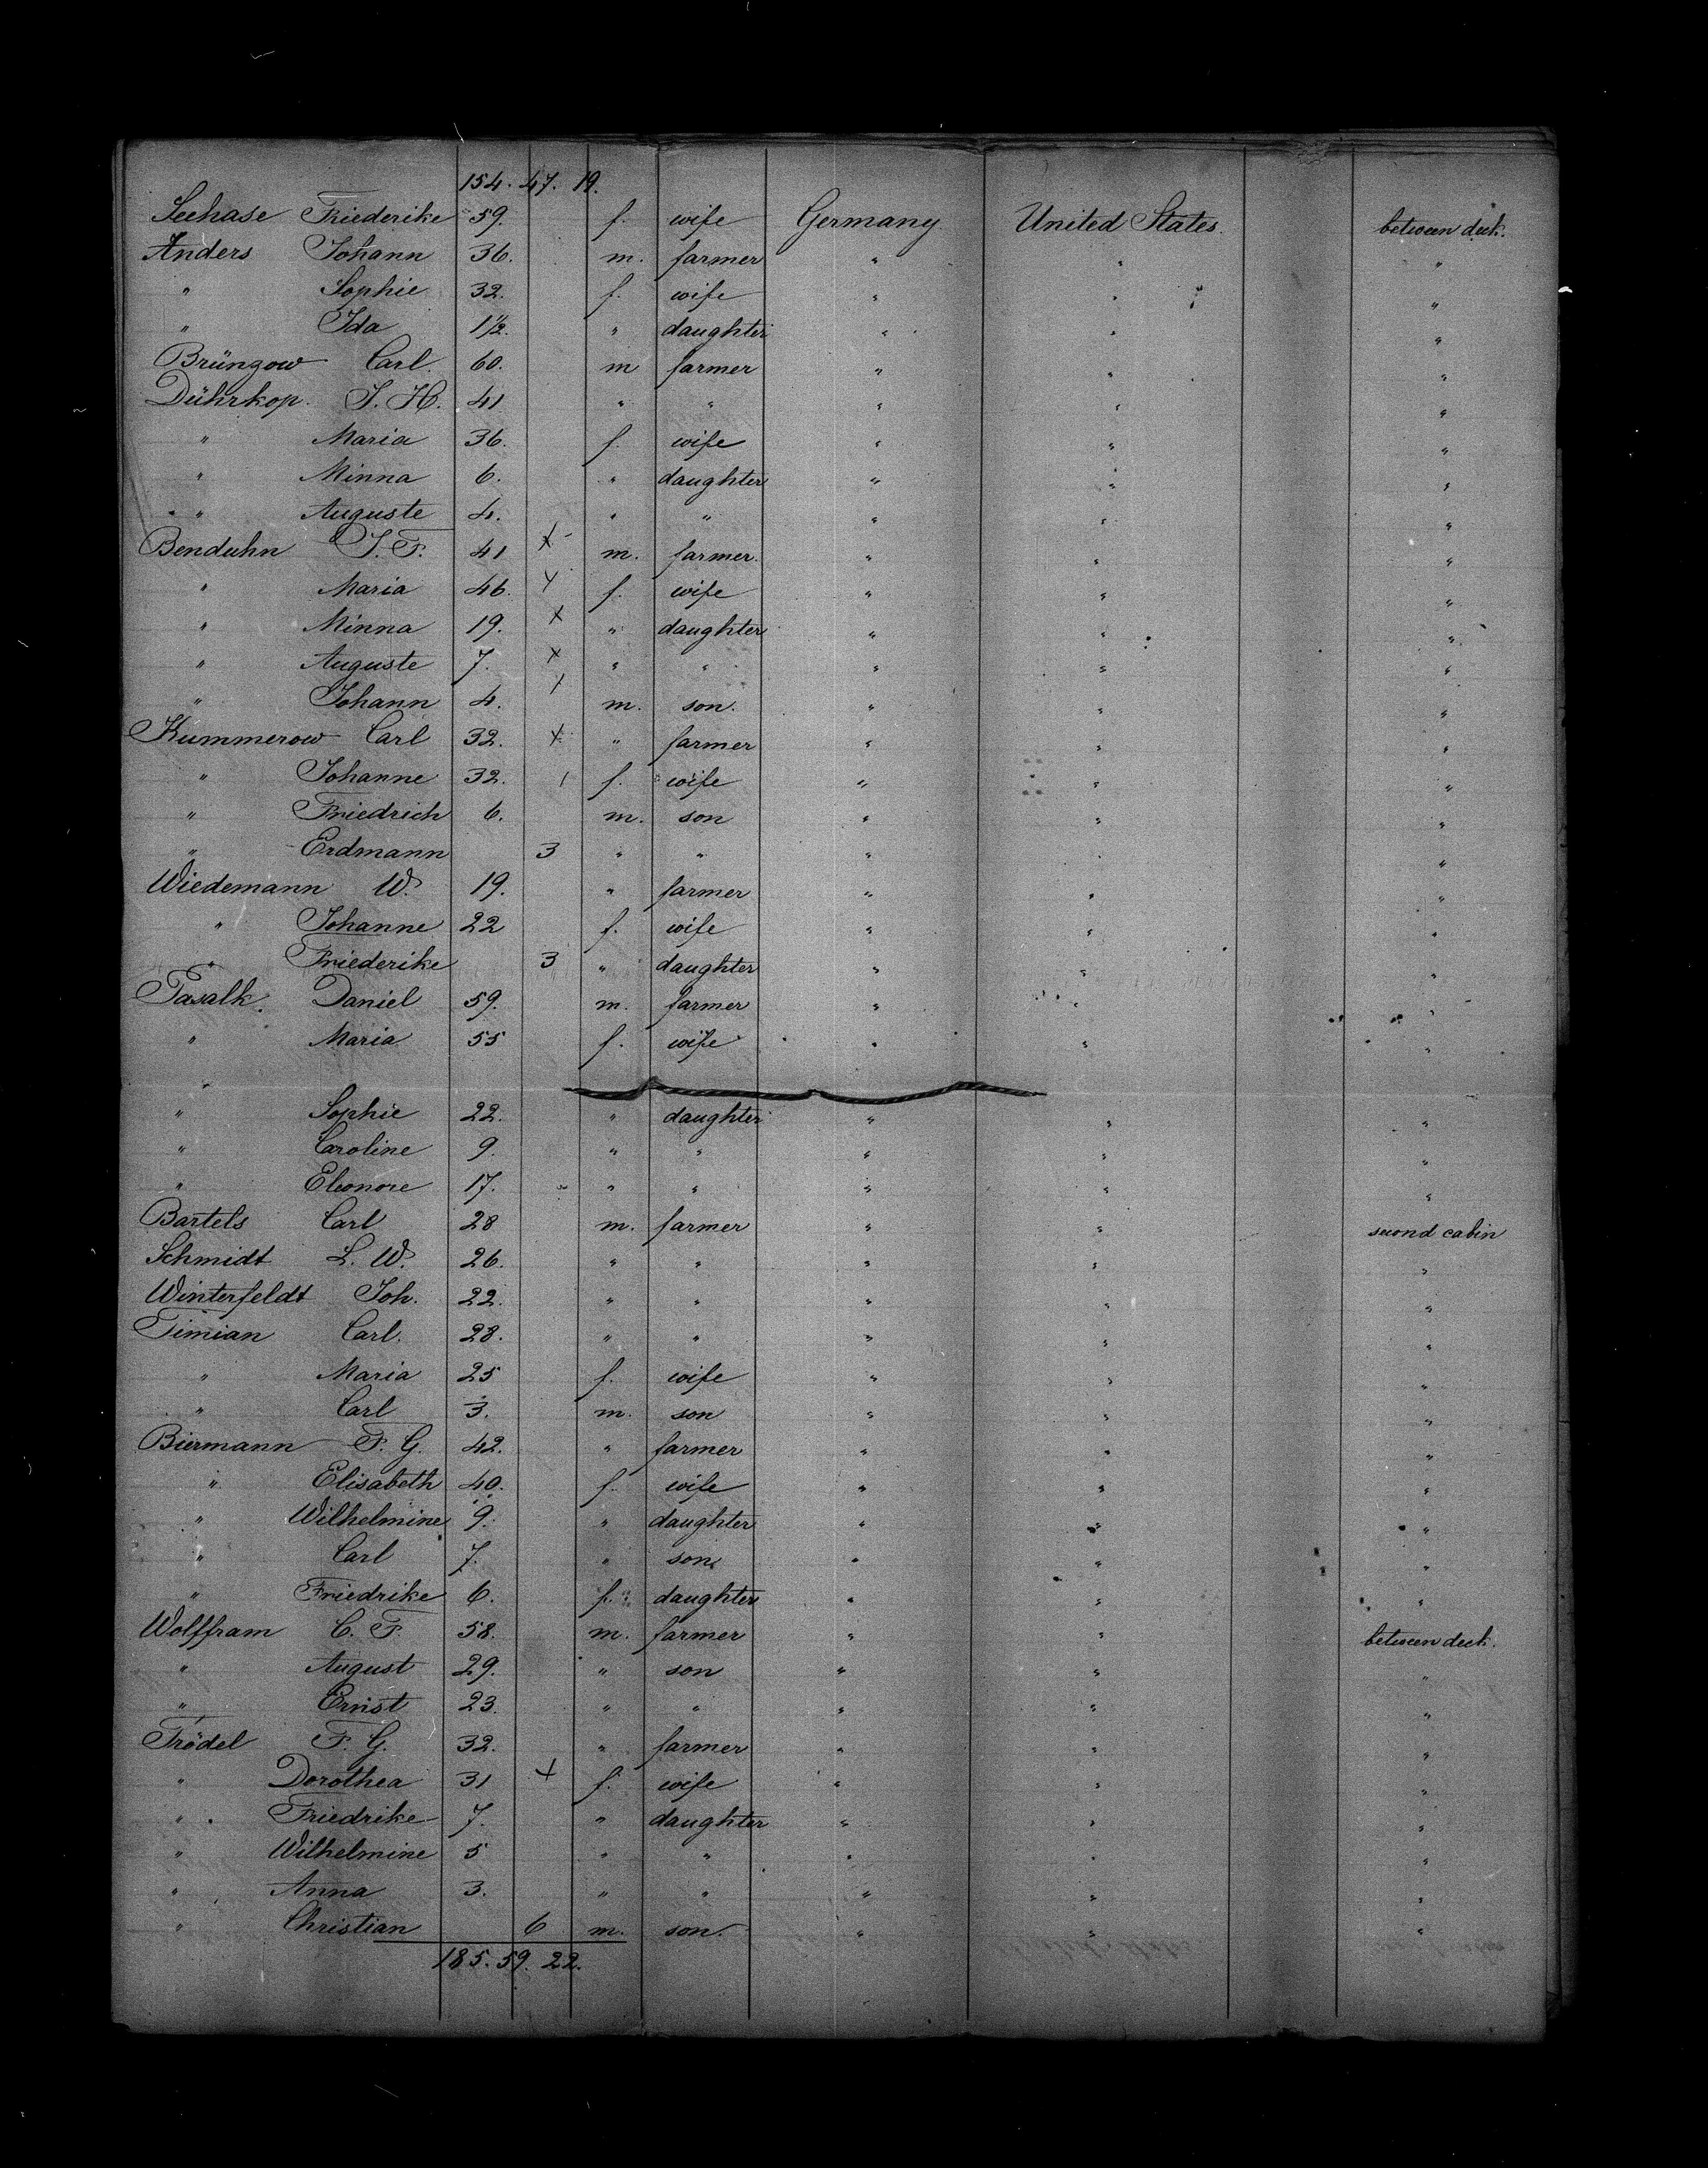 154. 47. 19.
Seehase Friederike 59. f. wife Germany United States. between deck.
Anders Johann 36. m. farmer " " "
" Sophie 32. f. wife " " "
" Ida 1½. " daughter " " "
Brüngow Carl. 60. m farmer " " "
Dührkop. J. H. 41 " " " " "
" Maria 36. f. wife " " "
" Minna 6. " daughter " " "
" Auguste 4. " " " " "
Benduhn J. F. 41 x m. farmer. " " "
" Maria 46. x f. wife " " "
" Minna 19. x " daughter " " "
" Auguste 7. x " " " " "
" Johann 4. / m. son. " " "
Kummerow Carl 32. x " farmer " " "
" Johanne 32. / f. wife " " "
" Friedrich 6. m. son " " "
" Erdmann 3 " " " " "
Wiedemann W. 19. " farmer " " "
" Johanne 22 f. wife " " "
" Friederike 3 " daughter " " "
Tasalk. Daniel 59. m. farmer " " "
" Maria 55 f. wife " " "
"
" Sophie 22. " daughter " " "
" Caroline 9. " " " " "
" Eleonore 17. " " " " "
Bartels Carl 28 m. farmer " " second cabin
Schmidt L. W. 26. " " " " "
Winterfeldt Joh. 22. " " " " "
Timian Carl. 28. " " " " "
" Maria 25 f. wife " " "
" Carl 3. m. son " " "
Biermann F. G. 42. " farmer " " "
" Elisabeth 40. f. wife " " "
" Wilhelmine 9. " daughter " " "
" Carl 7. " son " " "
" Friedrike 6. f. daughter " " "
Wolffram C. F. 58. m. farmer " " between deck.
" August 29. " son " " "
" Ernst 23. " " " " "
Trödel F. G. 32. " farmer " " "
" Dorothea 31 x f. wife " " "
" Friedrike 7. " daughter " " "
" Wilhelmine 5 " " " " "
" Anna 3. " " " " "
" Christian 6 m. son. " " "
185. 59. 22.